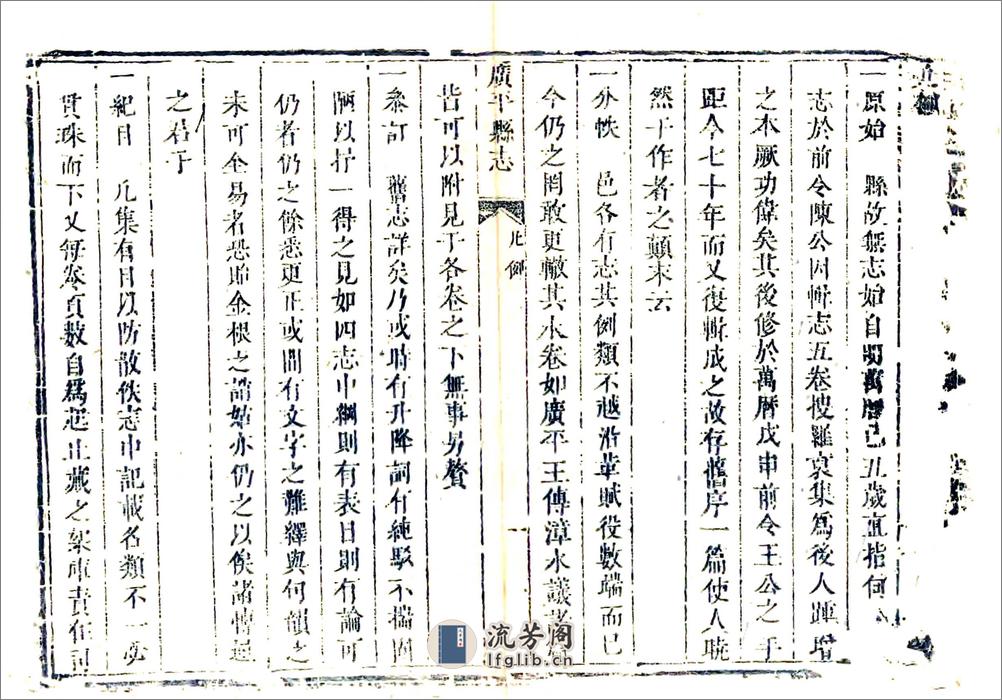 凡例
一原始　縣故無志始自明萬曆己丑歲直指何
志於前令陳公因輯志五卷搜羅裒集爲後人踵增
之本厥功偉矣其後修於萬曆戊申前令王公之手
距今七十年而又復輯成之故存舊序一篇使人曉
然于作者之顛末云
一分帙　邑各有志其例類不越沿革賦役數端而已
今仍之罔敢更轍其本卷如廣平王傳漳水議
皆可以附見于各卷之下無事另贅
廣平縣志
凡例
一
一叅訂　舊志詳矣乃或時有升降詞有純駁不揣固
陋以抒一得之見如四志中綱則有表目則有論可
仍者仍之餘悉更正或間有文字之難繹與何韻之
未可全易者恐貽金根之誚姑亦仍之以俟諸博通
之君子
一紀目　凡集有目以防散佚志中記載名類不一必
貫珠而下又每卷頁數自爲起止藏之架庫責在詞
流芳阁
lfglib.cn